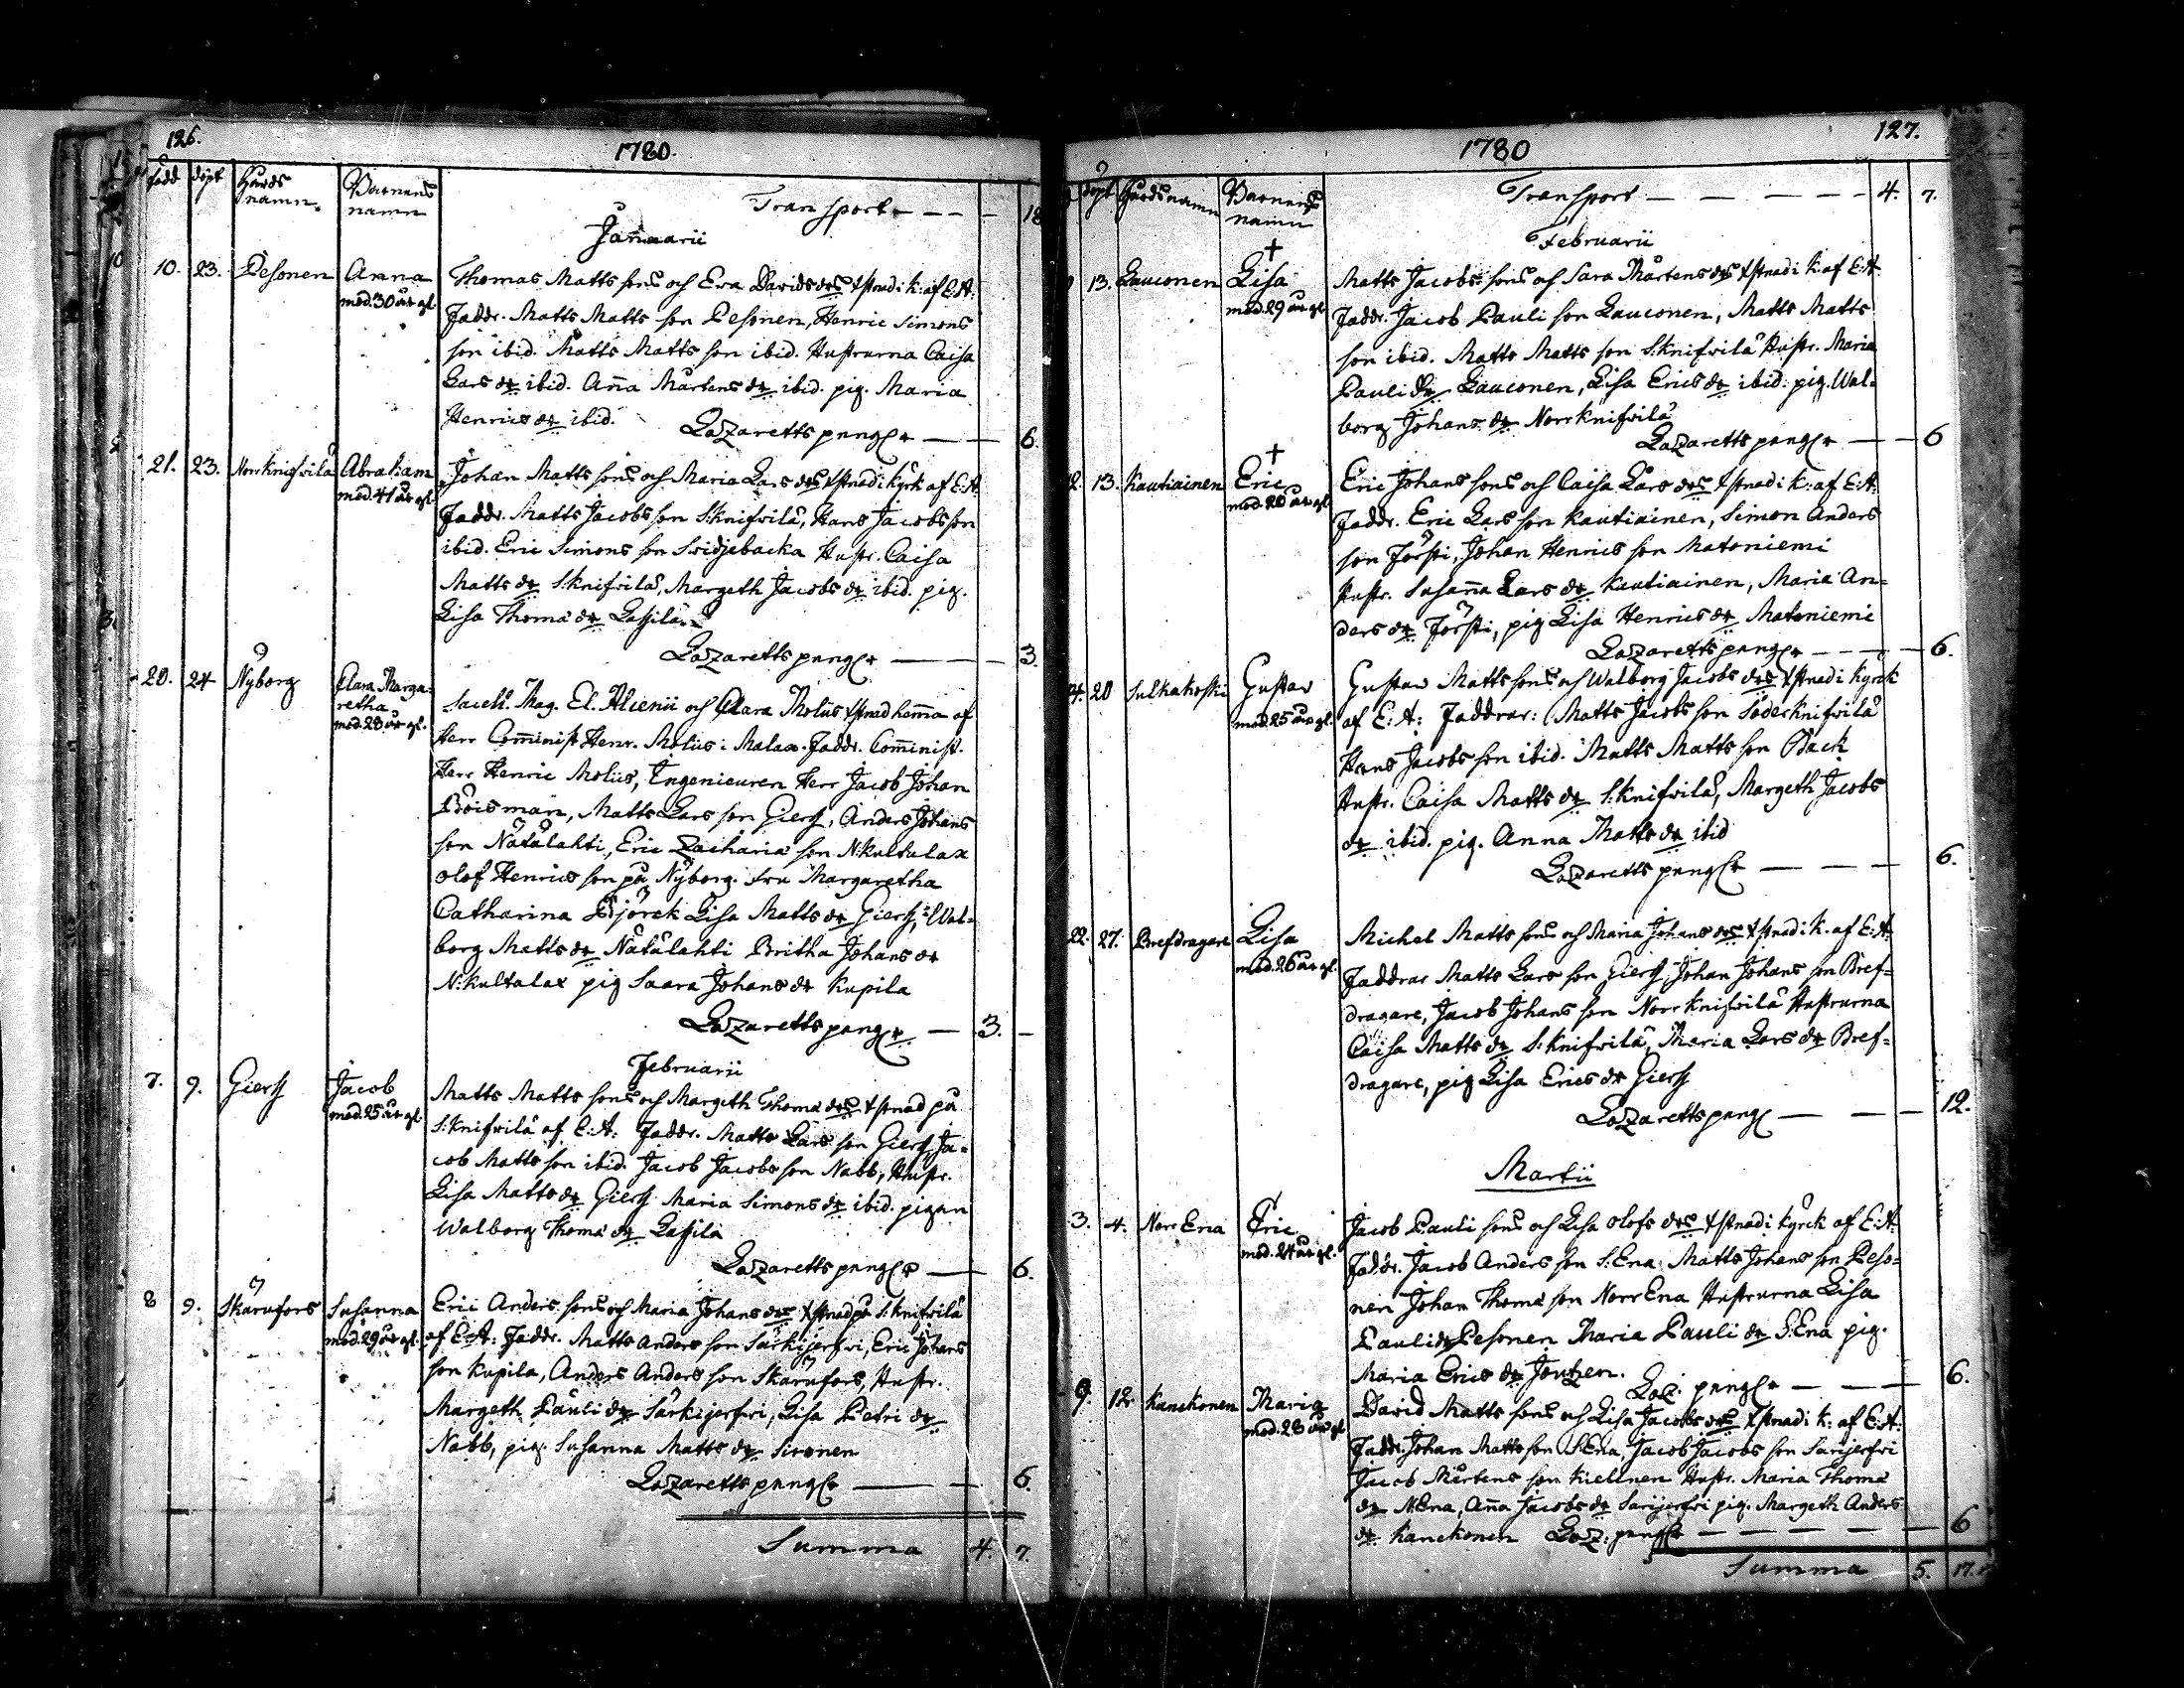 126.
1780.
född döpt Gårds namn. Barnens namn
Transport - - - - 18
Januarii
10. 23. Pesonen Anna Thomas Matts sons och Eva Davids drs xstnad i k: af E:A:
mod. 30 år gl. Faddr. Matts Matts son Pesonen, Henric Simons
son ibid. Matts Matts son ibid. Hustrurna Caisa
Lars dr ibid. Aña Mårtens dr ibid. pig. Maria
Henrics dr ibid. Lazaretts pngr — — 6.
21. 23. Norrknifsilä Abraham Johan Matts sons och Maria Lars drs xstnad i kyrk af E:A:
mod. 41 år gl. Faddr. Matts Jacobs son S:knifsilä, Hans Jacobs son
ibid. Eric Simons son Svidjebacka Hustr. Caisa
Matts dr S:knifsilä, Margeth Jacobs dr ibid. pig.
Lisa Thomæ dr Lassila
Lazaretts pngr — — — 3.
20. 24 Nyborg Clara Margaretha
mod. 28 år gl.
Sacell. Mag. El. Alcenii och Clara Moliis xstnad hem̃a af
Herr Com̃inist Henr. Moliis i Malax. Faddr. Com̃inist.
Herr Henric Moliis, Ingenieuren Herr Jacob Johan
Boisman, Matts Lars son Giers, Anders Johans
son Nätälahti, Eric Zachariæ son N:kultalax
Olof Henrics son på Nyborg. fru Margaretha
Catharina Björck Lisa Matts dr Giers, Wal-
borg Matts dr Nätälahti Britha Johans dr
N:kultalax pig Saara Johans dr Kupila
Lazaretts pengr — 3. —
Februarii
7. 9. Giers Jacob Matts Matts sons och Margeth Thomæ drs xstnad på
mod. 25 år gl. S:knifsilä af E:A: Faddr. Matts Lars son Giers, Ja-
cob Matts son ibid. Jacob Jacobs son Nabb, Hustr.
Lisa Matts dr Giers Maria Simons dr ibid. pigan
Walborg Thomæ dr Lassila
Lazaretts pngr — 6.
8 9. Skarufors Susanna Eric Anders sons och Maria Johans drs xstnad på S:knifsilä
mod. 29 år gl. af E:A: Faddr. Matts Anders son Särkijerfvi, Eric Johans
son Kupila, Anders Anders son Skarufors, Hustr.
Margeth Pauli dr Särkijerfvi, Lisa Petri dr
Nabb, pig. Susanna Matts dr Sironen
Lazaretts pngr — — 6.
Summa 4. 7.
127.
1780
döpt Gårds namn Barnens namn
Transport — — — — 4. 7.
Februarii
13. Lauconen Lisa Matts Jacobs sons och Sara Mårtens drs xstnad i k: af E:A:
mod. 29 år gl. Faddr. Jacob Pauli son Lauconen, Matts Matts
son ibid. Matts Matts son S:knifsilä Hustr. Maria
Pauli dr Lauconen, Lisa Erics dr ibid. pig. Wal-
borg Johans dr Norrknifsilä
Lazaretts pengr — — 6
12. 13. Kautiainen Eric Eric Johans sons och Caisa Lars drs xstnad i k: af E:A:
mod. 28 år gl. Faddr. Eric Lars son Kautiainen, Simon Anders
son Försti, Johan Henrics son Matoniemi
Hustr. Susan̄a Lars dr Kautiainen, Maria An-
ders dr Försti, pig Lisa Henrics dr Matoniemi
Lazaretts pengr — — — 6.
14. 20 Sulkakoski Gustav Gustav Matts sons och Walborg Jacobs drs xstnad i Kyrck
mod. 25 år gl. af E:A: Faddrar: Matts Jacobs son Söderknifsilä
Hans Jacobs son ibid. Matts Matts son Back
Hustr. Caisa Matts dr S:knifsilä, Margeth Jacobs
dr ibid. pig. Anna Matts dr ibid
Lazaretts pngr — — — 6.
22. 27. Brefdragare Lisa Michel Matts sons och Maria Johans drs xstnad i k. af E:A:
mod. 26 år gl. Faddrar Matts Lars son Giers, Johan Johans son Bref-
dragare, Jacob Johans son Norrknifsilä Hustrurna
Caisa Matts dr S:knifsilä, Maria Lars dr Bref-
dragare, pig Lisa Erics dr Giers
Lazaretts peng — — — 12.
Martii
3. 4. Norr Ena Eric Jacob Pauli sons och Lisa Olofs drs xstnad i kyrck af E:A:
mod. 24 år gl. Faddr. Jacob Anders son S:Ena Matts Johans son Peso-
nen Johan Thomæ son Norr Ena Hustrurna Lisa
Pauli dr Pesonen Maria Pauli dr S:Ena pig.
Maria Erics dr Joutzen. Laz: pngr — — — 6.
9. 12. Kanckonen Maria David Matts sons och Lisa Jacobs drs xstnad i k: af E:A:
mod. 28 år gl Faddr. Johan Matts son S:Ena, Jacob Jacobs son Särijerfvi
Jacob Mårtens son Kielinen Hustr. Maria Thomæ
dr N:Ena, Aña Jacobs dr Särijerfvi pig. Margeth Anders
dr Kanckonen Laz: pengr — — — — — 6
Summa 5. 17.